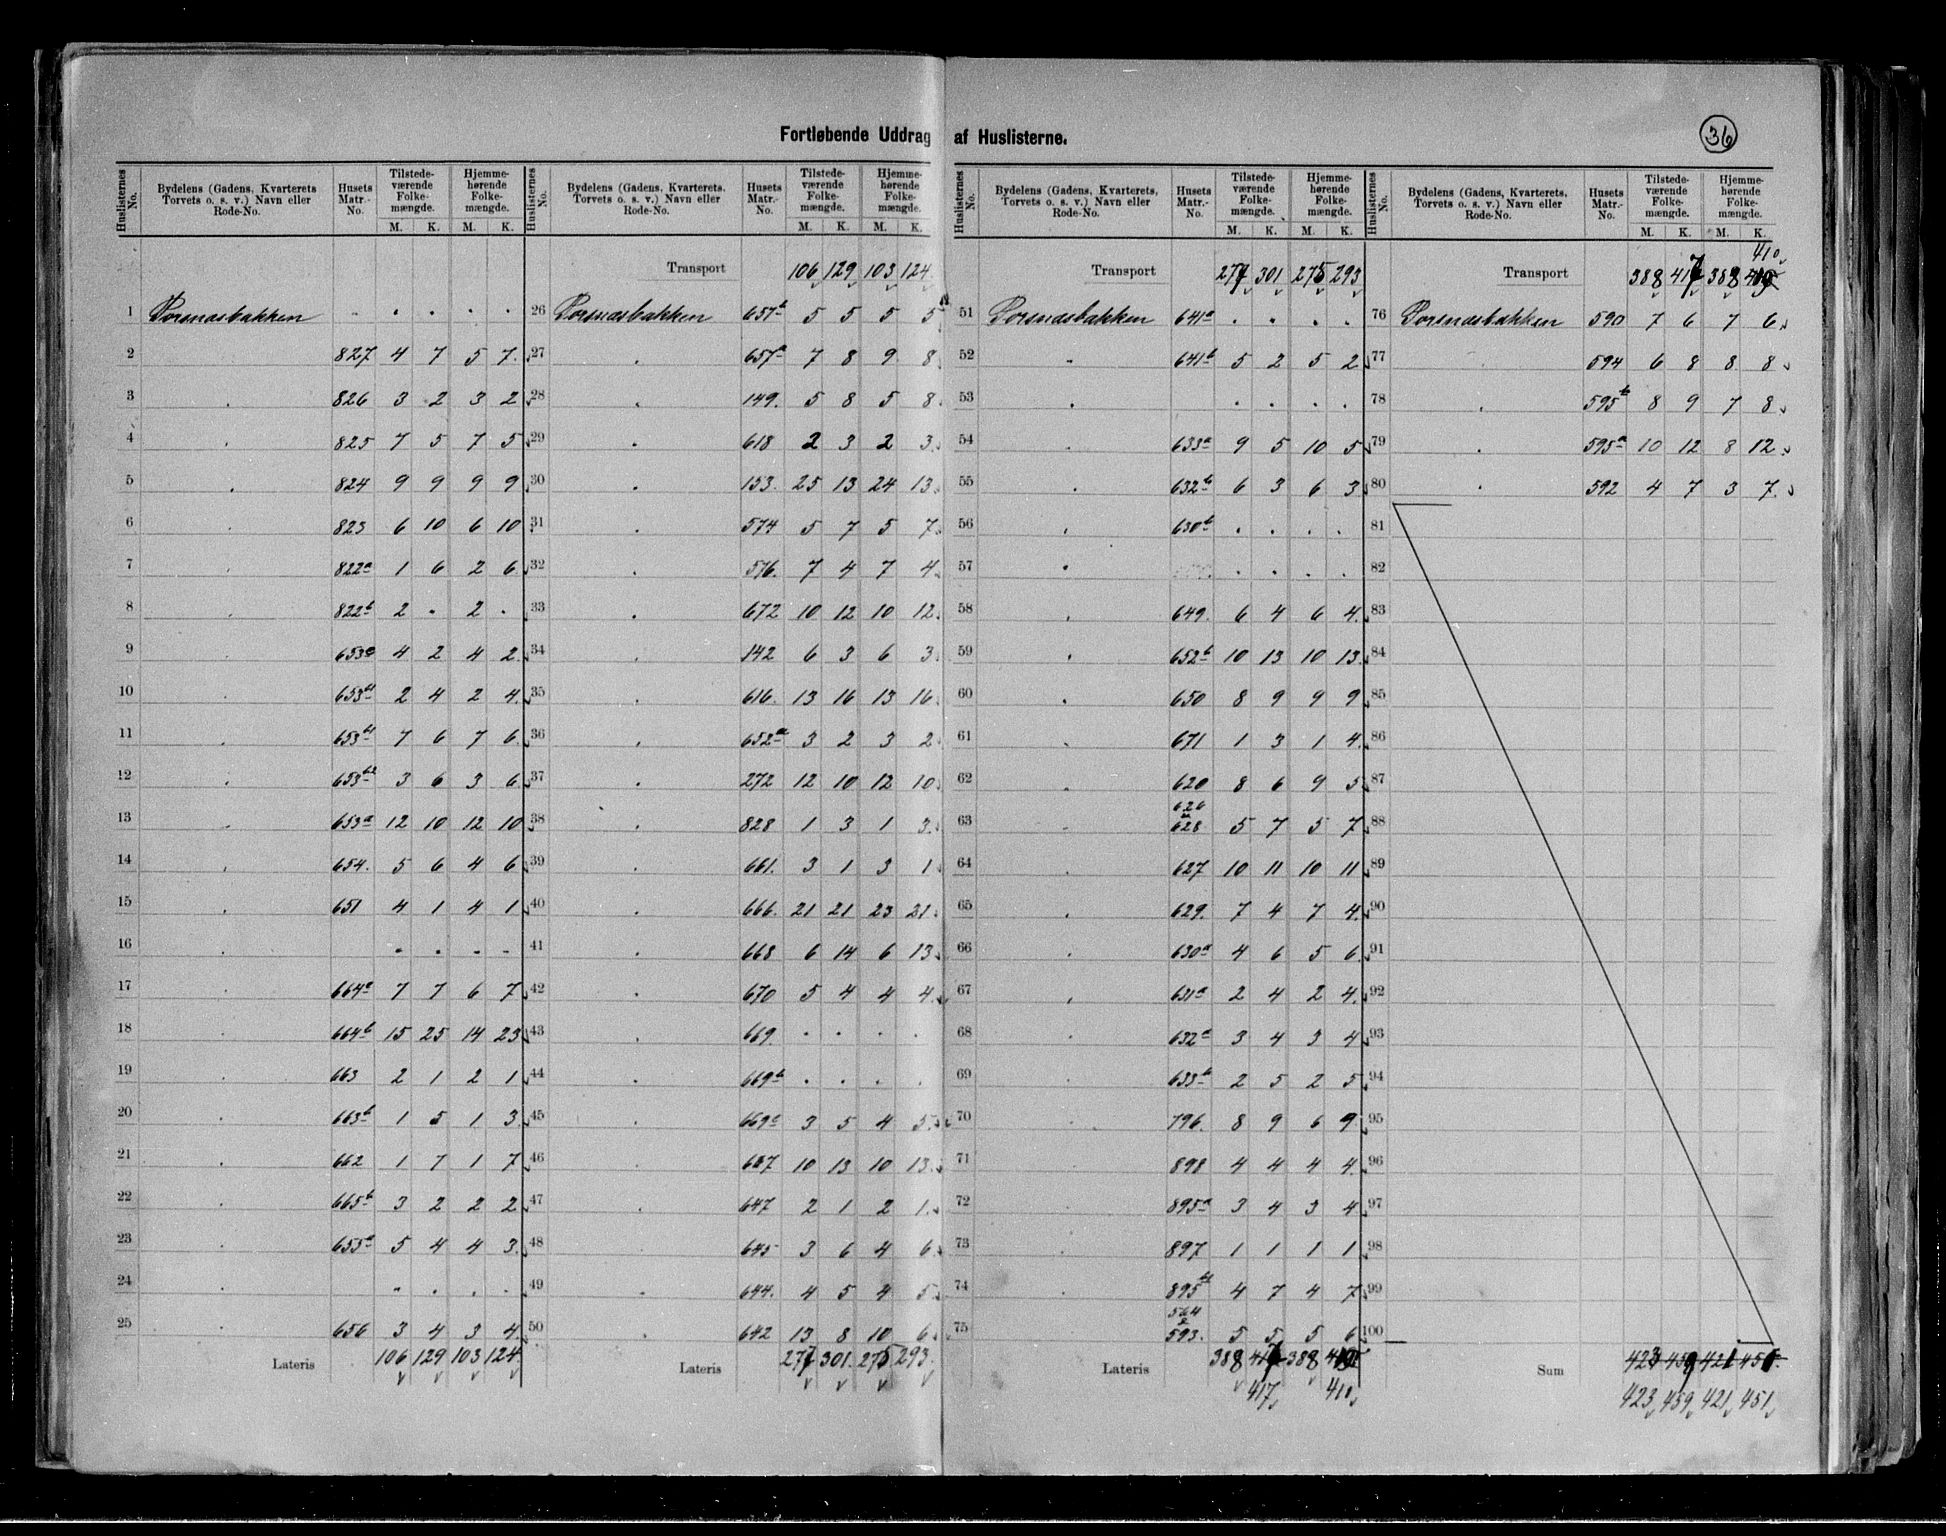 36
Fortløbende Uddrag af Huslisterne.
Huslisternes No. Bydelens (Gadens, Kvarterets Torvets o. s. v.) Navn eller Rode-No. Husets Matr.-No. Tilstede-værende Folke-mængde. Hjemme-hørende Folke-mængde.
M. K. M. K.
1 Porsnæsbakken . . . .
2 827 4 7 5 7
3 826 3 2 3 2
4 825 7 5 7 5
5 824 9 9 9 9
6 823 6 10 6 10
7 822a 1 6 2 6
8 822b 2 . 2 .
9 653c 4 2 4 2
10 653 2 4 2 4
11 653 7 6 7 6
12 653 3 6 3 6
13 653a 12 10 12 10
14 654. 5 6 4 6
15 651 4 1 4 1
16 . . . .
17 664a 7 7 6 7
18 664b 15 25 14 23
19 663 2 1 2 1
20 663b 1 5 1 3
21 662 1 7 1 7
22 665b 3 2 2 2
23 655a 5 4 4 3
24 . . . .
25 656 3 4 3 4
Lateris 106 129 103 124
Huslisternes No. Bydelens (Gadens, Kvarterets, Torvets o. s. v.) Navn eller Rode-No. Husets Matr.-No. Tilstede-værende Folke-mængde. Hjemme-hørende Folke-mængde.
M. K. M. K.
Transport 106 129 103 124
26 Porsnæsbakken 657b 5 5 5 5
27 657a 7 8 9 8
28 149. 5 8 5 8
29 618 2 3 2 3
30 153. 25 13 24 13
31 574 5 7 5 7
32 576. 7 4 7 4
33 672 10 12 10 12
34 142 6 3 6 3
35 616. 13 16 13 16
36 652a 3 2 3 2
37 272 12 10 12 10
38 828 1 3 1 3
39 661. 3 1 3 1
40 666. 21 21 23 21
41 668 6 14 6 13
42 670 5 4 4 4
43 669. . . . .
44 669b . . . .
45 669c 3 5 4 5
46 10 13 10 13
47 647 2 1 2 1
48 645 3 6 4 6
49 644. 4 5 4 5
50 642 13 8 10 6
Lateris 277 301 275 293
Huslisternes No. Bydelens (Gadens, Kvarterets, Torvets o. s. v.) Navn eller Rode-No. Husets Matr.-No. Tilstede-værende Folke-mængde. Hjemme-hørende Folke-mængde.
M. K. M. K.
Transport 277 301 275 293
51 Porsnæsbakken 641a . . . .
52 641b 5 2 5 2
53 . . . .
54 633a 9 5 10 5
55 632b 6 3 6 3
56 630b . . . .
57 . . . .
58 649. 6 4 6 4
59 652b 10 13 10 13
60 650 8 9 9 9
61 671 1 3 1 4
62 620 8 6 9 5
63 626 & 628 5 7 5 7
64 627 10 11 10 11
65 629. 7 4 7 4
66 630a 4 6 5 6
67 631a 2 4 2 4
68 632a 3 4 3 4
69 633b 2 5 2 5
70 796. 8 9 6 9
71 898 4 4 4 4
72 895a 3 4 3 4
73 897 1 1 1 1
74 895 4 7 4 7
75 564 & 593. 5 5 5 6
Lateris 388 388
417 410
Huslisternes No. Bydelens (Gadens, Kvarterets, Torvets o. s. v.) Navn eller Rode-No. Husets Matr.-No. Tilstede-værende Folke-mængde. Hjemme-hørende Folke-mængde.
M. K. M. K.
410
Transport 388 417 388
76 Porsnæsbakken 590 7 6 7 6
77 594 6 8 8 8
78 595b 8 9 7 8
79 595a 10 12 8 12
80 592 4 7 3 7
81
82
83
84
85
86
87
88
89
90
91
92
93
94
95
96
97
98
99
100
Sum 423 459 421 451
423 459 421 451